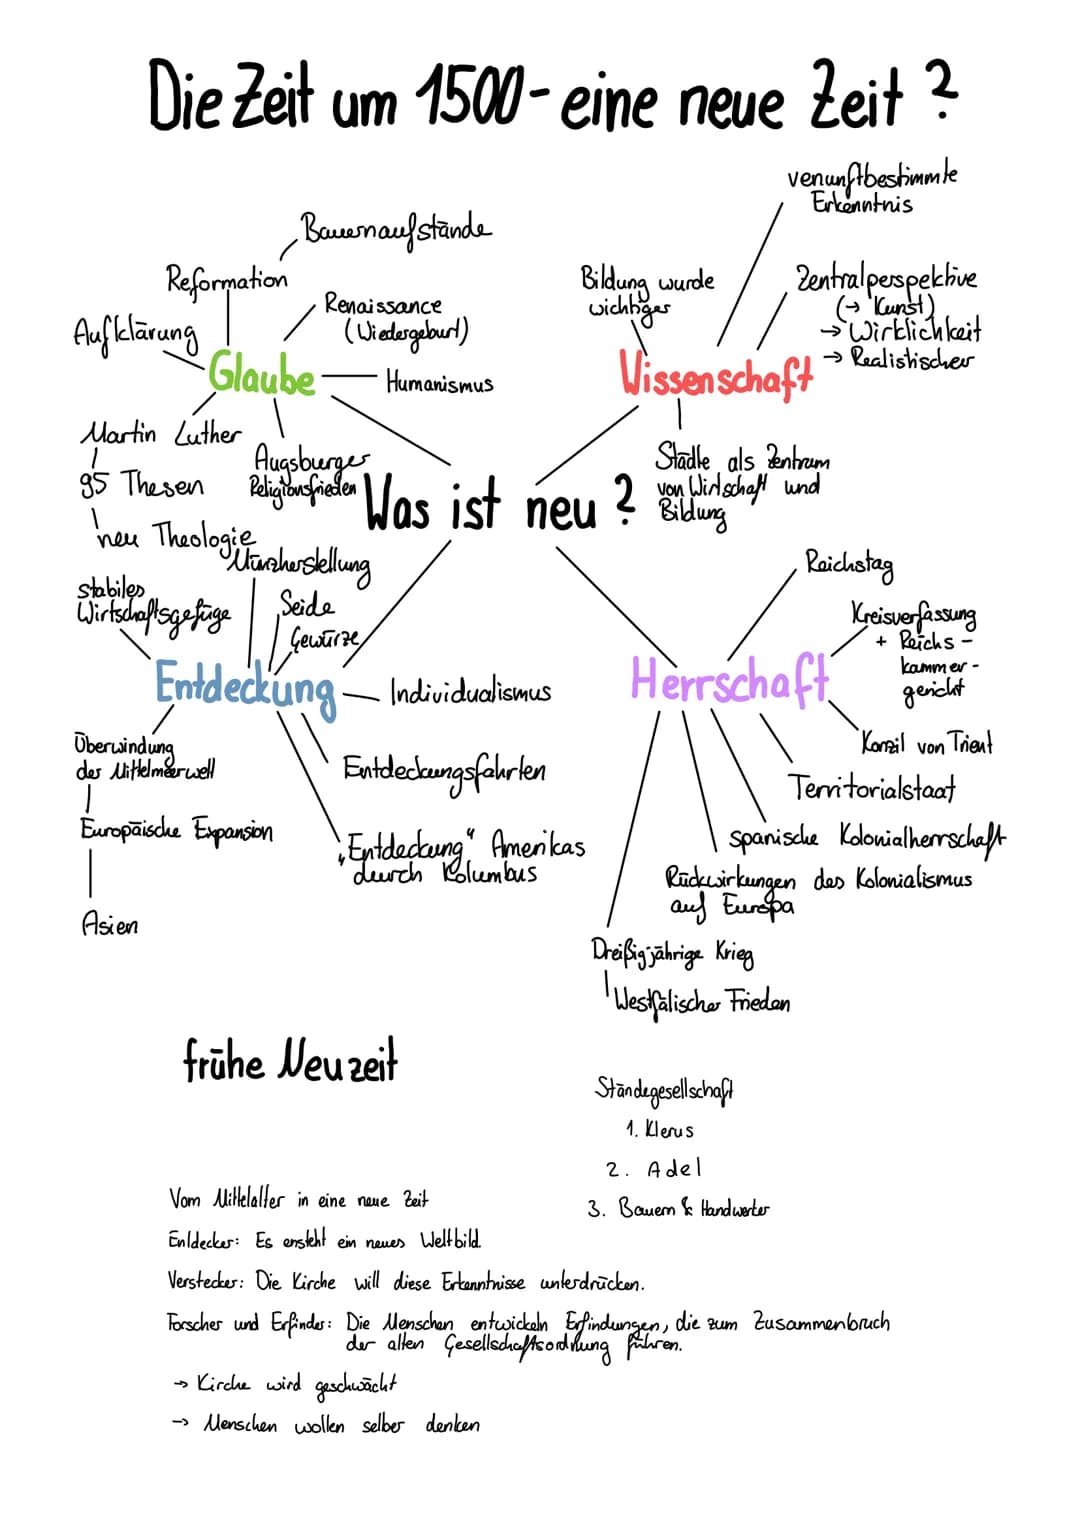 Die Zeit um 1500 - eine neue Zeit ?
Glaube
Aufklärung
Reformation
Bauernaufstände
Renaissance
(Wiedergeburt)
Humanismus
Augsburger
Religionsfrieden
Martin Luther
95 Thesen
neu Theologie
Wissenschaft
Bildung wurde
wichtiger
venunftbestimmte
Erkenntnis
Zentralperspektive
(→ Kunst)
→ Wirklichkeit
→ Realistischer
Städte als Zentrum
von Wirtschaft und
Bildung
Was ist neu ?
Entdeckung
stabiles
Wirtschaftsgefüge
Münzherstellung
Seide
Gewürze
Individualismus
Entdeckungsfahrten
„Entdeckung“ Amerikas
durch Kolumbus
Überwindung
der Mittelmeerwelt
Europäische Expansion
Asien
Herrschaft
Reichstag
Kreisverfassung
+ Reichs-
kammer-
gericht
Konzil von Trient
Territorialstaat
spanische Kolonialherrschaft
Rückwirkungen des Kolonialismus
auf Europa
Dreißigjährige Krieg
Westfälischer Frieden
frühe Neuzeit
Ständegesellschaft
1. Klerus
2. Adel
3. Bauern & Handwerker
Vom Mittelalter in eine neue Zeit
Entdecker: Es ensteht ein neues Weltbild.
Verstecker: Die Kirche will diese Erkenntnisse unterdrücken.
Forscher und Erfinder: Die Menschen entwickeln Erfindungen, die zum Zusammenbruch
der alten Gesellschaftsordnung führen.
→ Kirche wird geschwächt
→ Menschen wollen selber denken